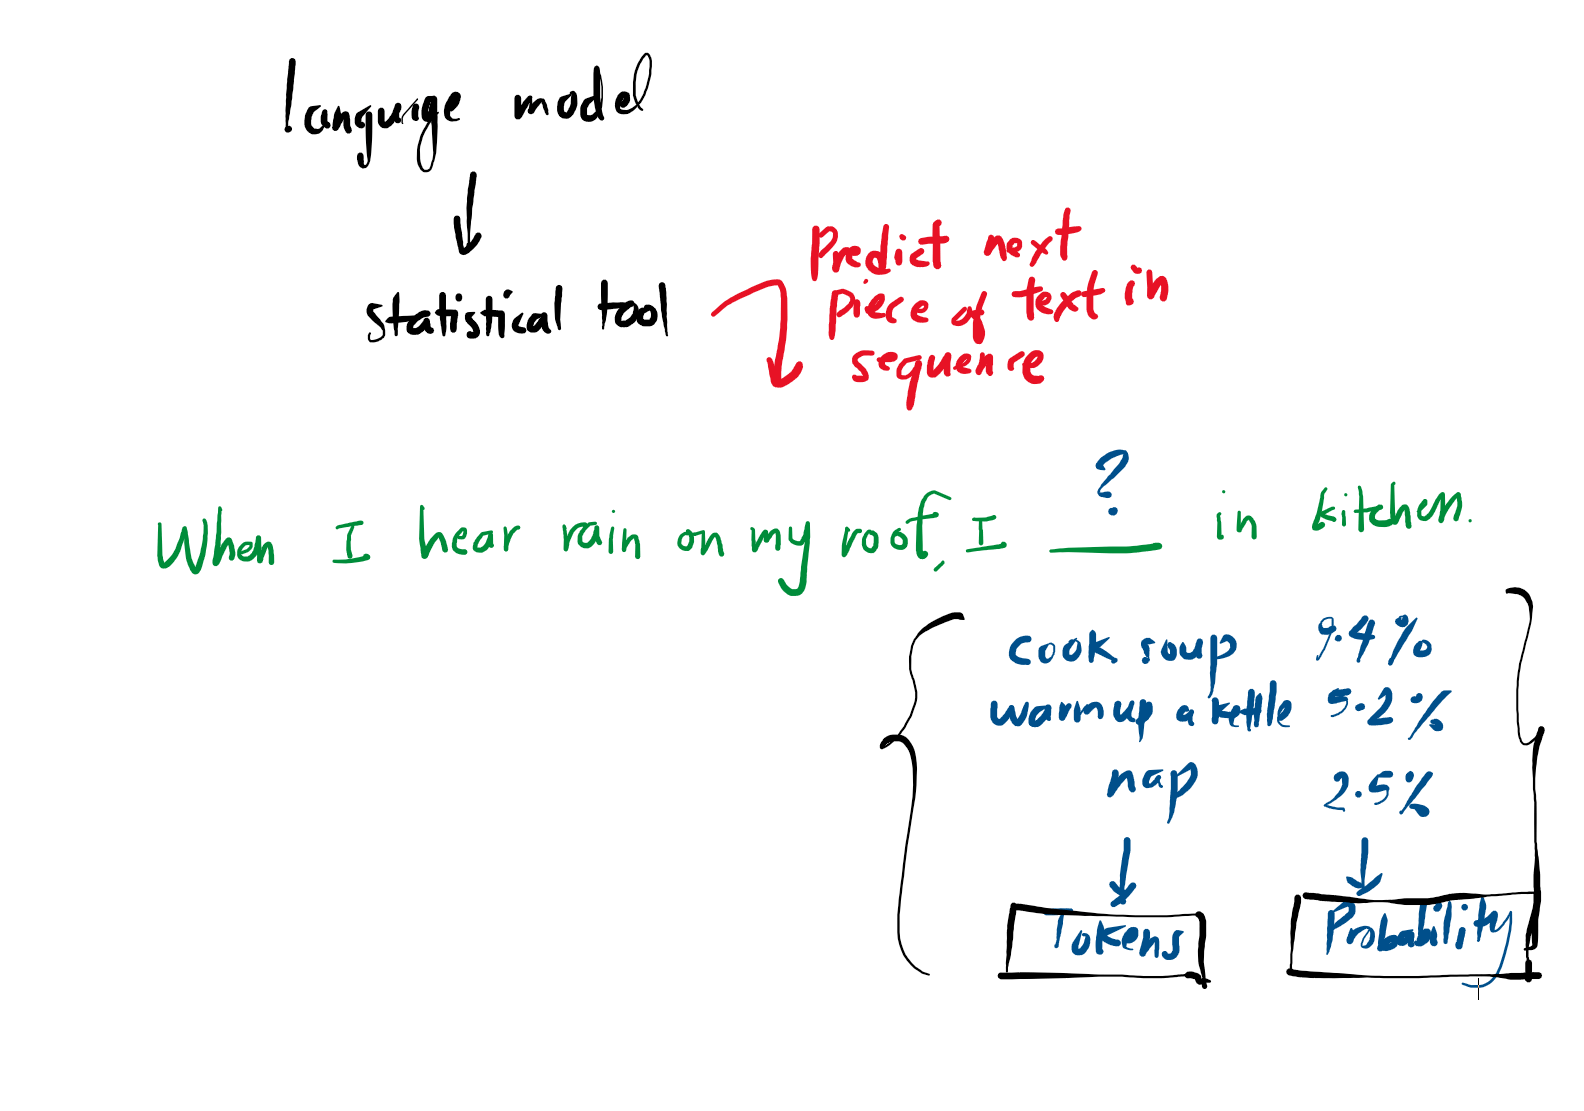 language model
statistical tool
Predict next
piece of text in
sequence
?
When I hear rain on my roof, I ___ in kitchen.
cook soup 9.4%
warm up a kettle 5.2%
nap 2.5%
Tokens Probability